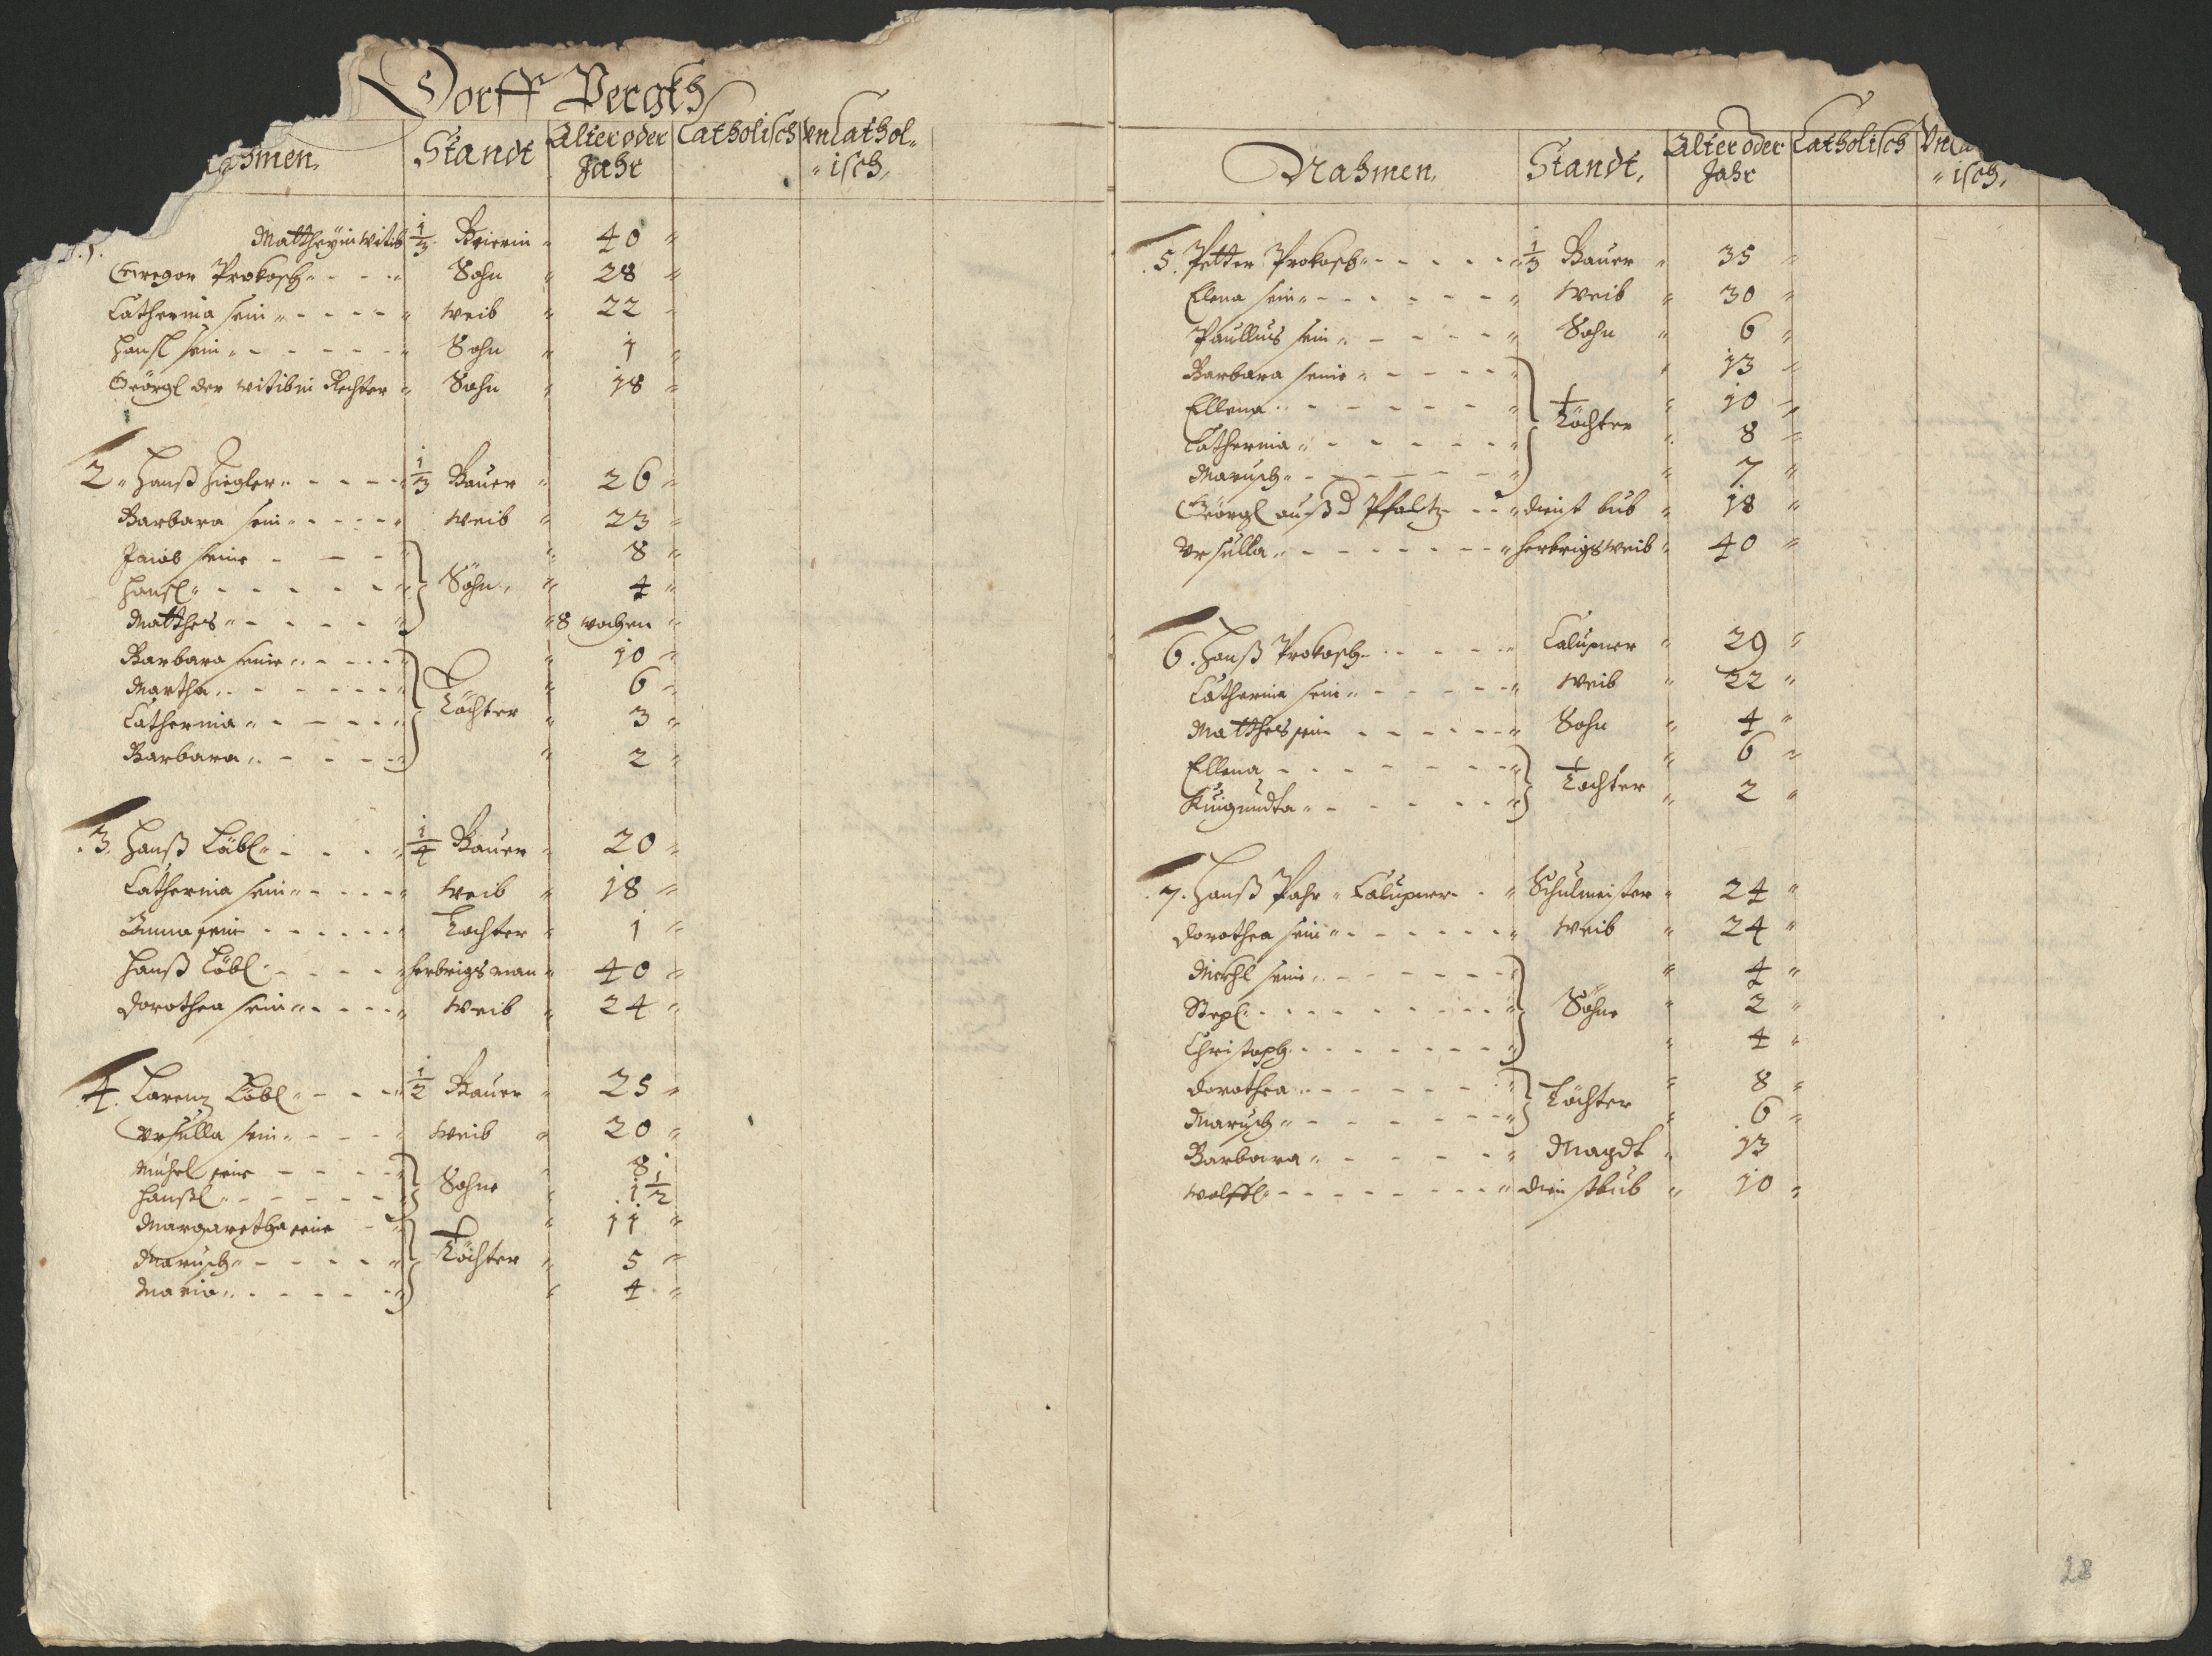 Dorff Bergkh
Nahmen. Standt Alter oder Jahr Catholisch vnCathol- isch.
1. Mattheÿin Witib 1/3 Beierin 40
Gregor Prokosch Sohn 28
Catherina sein Weib 22
Hansl sein Sohn 1
Geörgl der witibin Rechter Sohn 18
2. Hanß Ziegler 1/3 Bauer 26
Barbara sein Weib 23
Jacob seine 8
Hansl Söhn 4
Matthes 8 wochen
Barbara seine 10
Martha 6
Catherina Töchter 3
Barbara 2
3. Hanß Läbl 1/4 Bauer 20
Catherina sein Weib 18
Anna sein Tochter 1
Hanß Löbl herbrigsman 40
Dorothea sein Weib 24
4. Lorenz Löbl 1/2 Bauer 25
Vrsulla sein Weib 20
Michel seine Sohne 8
Hanßl 1 1/2
Margaretha seine 11
Marusch Töchter 5
Maria 4
Nahmen. Standt. Alter oder Jahr Catholisch isch.
5. Petter Prokosch 1/3 Bauer 35
Elena sein Weib 30
Paullus sein Sohn 6
Barbara seine 13
Ellena Töchter 10
Catherina 8
Marusch 7
Geörgl auß d Pfaltz dienst bub 18
Vrsulla herbrigsweib 40
6. Hanß Prokosch Calupner 29
Catherina sein Weib 22
Matthes sein Sohn 4
Ellena Tochter 6
Kuigundta 2
7. Hanß Pahr Calupner Schulmeister 24
Dorothea sein Weib 24
Michl seine 4
Stepl Söhne 2
Christoph 4
Dorothea Töchter 8
Marusch 6
Barbara Magdt 13
Wolffl dienstbub 10
28